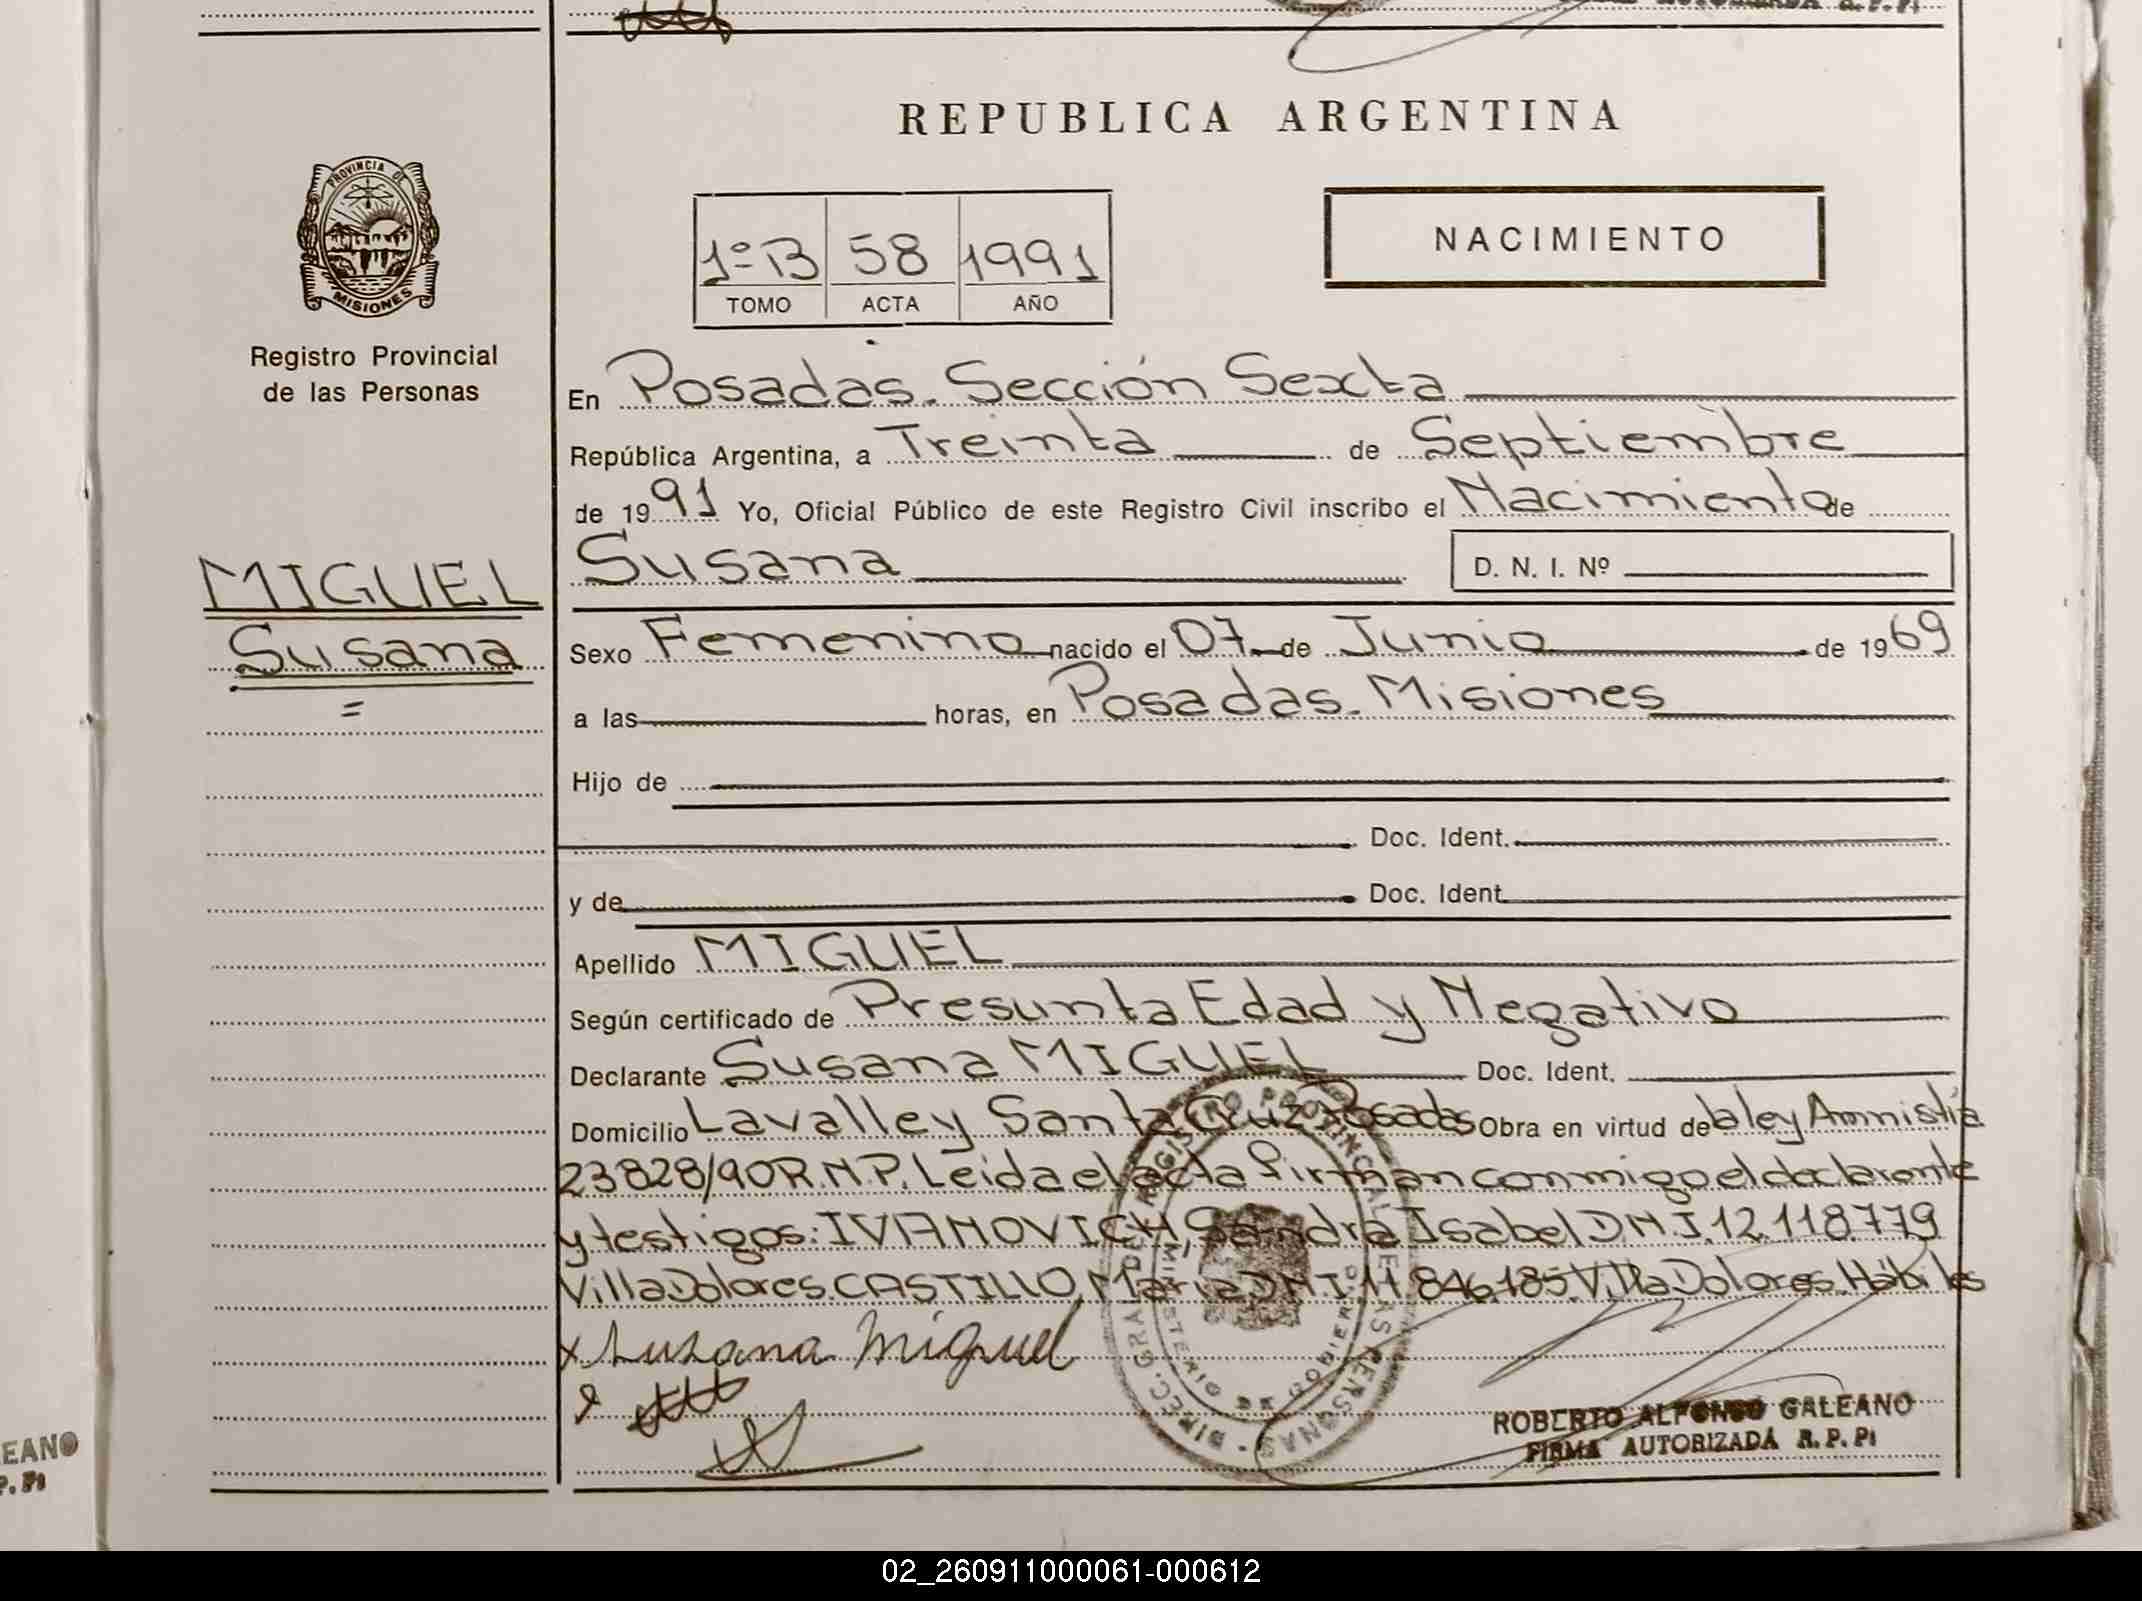 REPUBLICA ARGENTINA
PROVINCIA DE
MISIONES
Registro Provincial
de las Personas
1º B 58 1991
TOMO ACTA AÑO
NACIMIENTO
MIGUEL
Susana
En Posadas. Sección Sexta
República Argentina, a Treinta de Septiembre
de 1991 Yo, Oficial Público de este Registro Civil inscribo el Nacimiento de
Susana D. N. I. Nº
Sexo Femenino nacido el 07 de Junio de 1969
a las horas, en Posadas. Misiones
Hijo de
Doc. Ident.
y de Doc. Ident.
Apellido MIGUEL
Según certificado de Presunta Edad y Negativo
Declarante Susana MIGUEL Doc. Ident.
Domicilio Lavalley Santa Cruz Posadas Obra en virtud de la ley Amnistía
23828/90 R.N.P. Leida el acta firman conmigo el declarante
y testigos: IVANOVICH, Sandra Isabel D.N.I. 12.118.779
Villa Dolores. CASTILLO, Maria D.N.I. 11.846.185 Villa Dolores. Hábiles
x Susana Miguel
ROBERTO ALFONSO GALEANO
FIRMA AUTORIZADA R. P. Pi
EANO
P. Pi
02_260911000061-000612